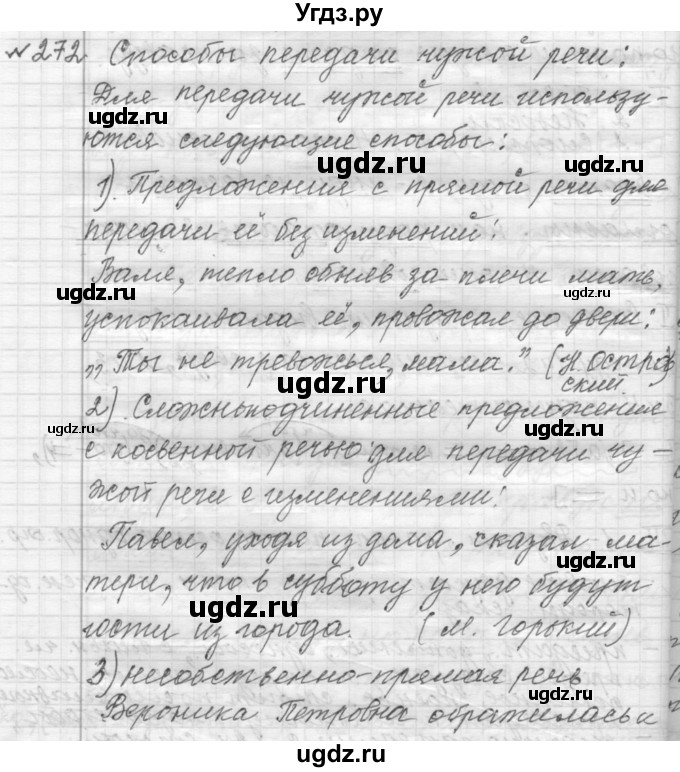 Угдз.ру
№272 Способы передачи чужой речи:
Для передачи чужой речи использу-
ются следующие способы:
1). Предложения с прямой речи для
передачи её без изменений:
Валя, тепло обняв за плечи мать,
успокаивала её, провожая до двери:
„Ты не тревожься, мама." (Н. Остров
ский)
2). Сложноподчиненные предложения
с косвенной речью для передачи чу-
жой речи с изменениями:
Павел, уходя из дома, сказал ма-
тери, что в субботу у него будут
гости из города. (М. Горький)
3) несобственно-прямая речь
Вероника Петровна обратилась к
ugdz.ru
ugdz.ru
ugdz.ru
ugdz.ru
ugdz.ru
ugdz.ru
ugdz.ru
ugdz.ru
ugdz.ru
ugdz.ru
ugdz.ru
ugdz.ru
ugdz.ru